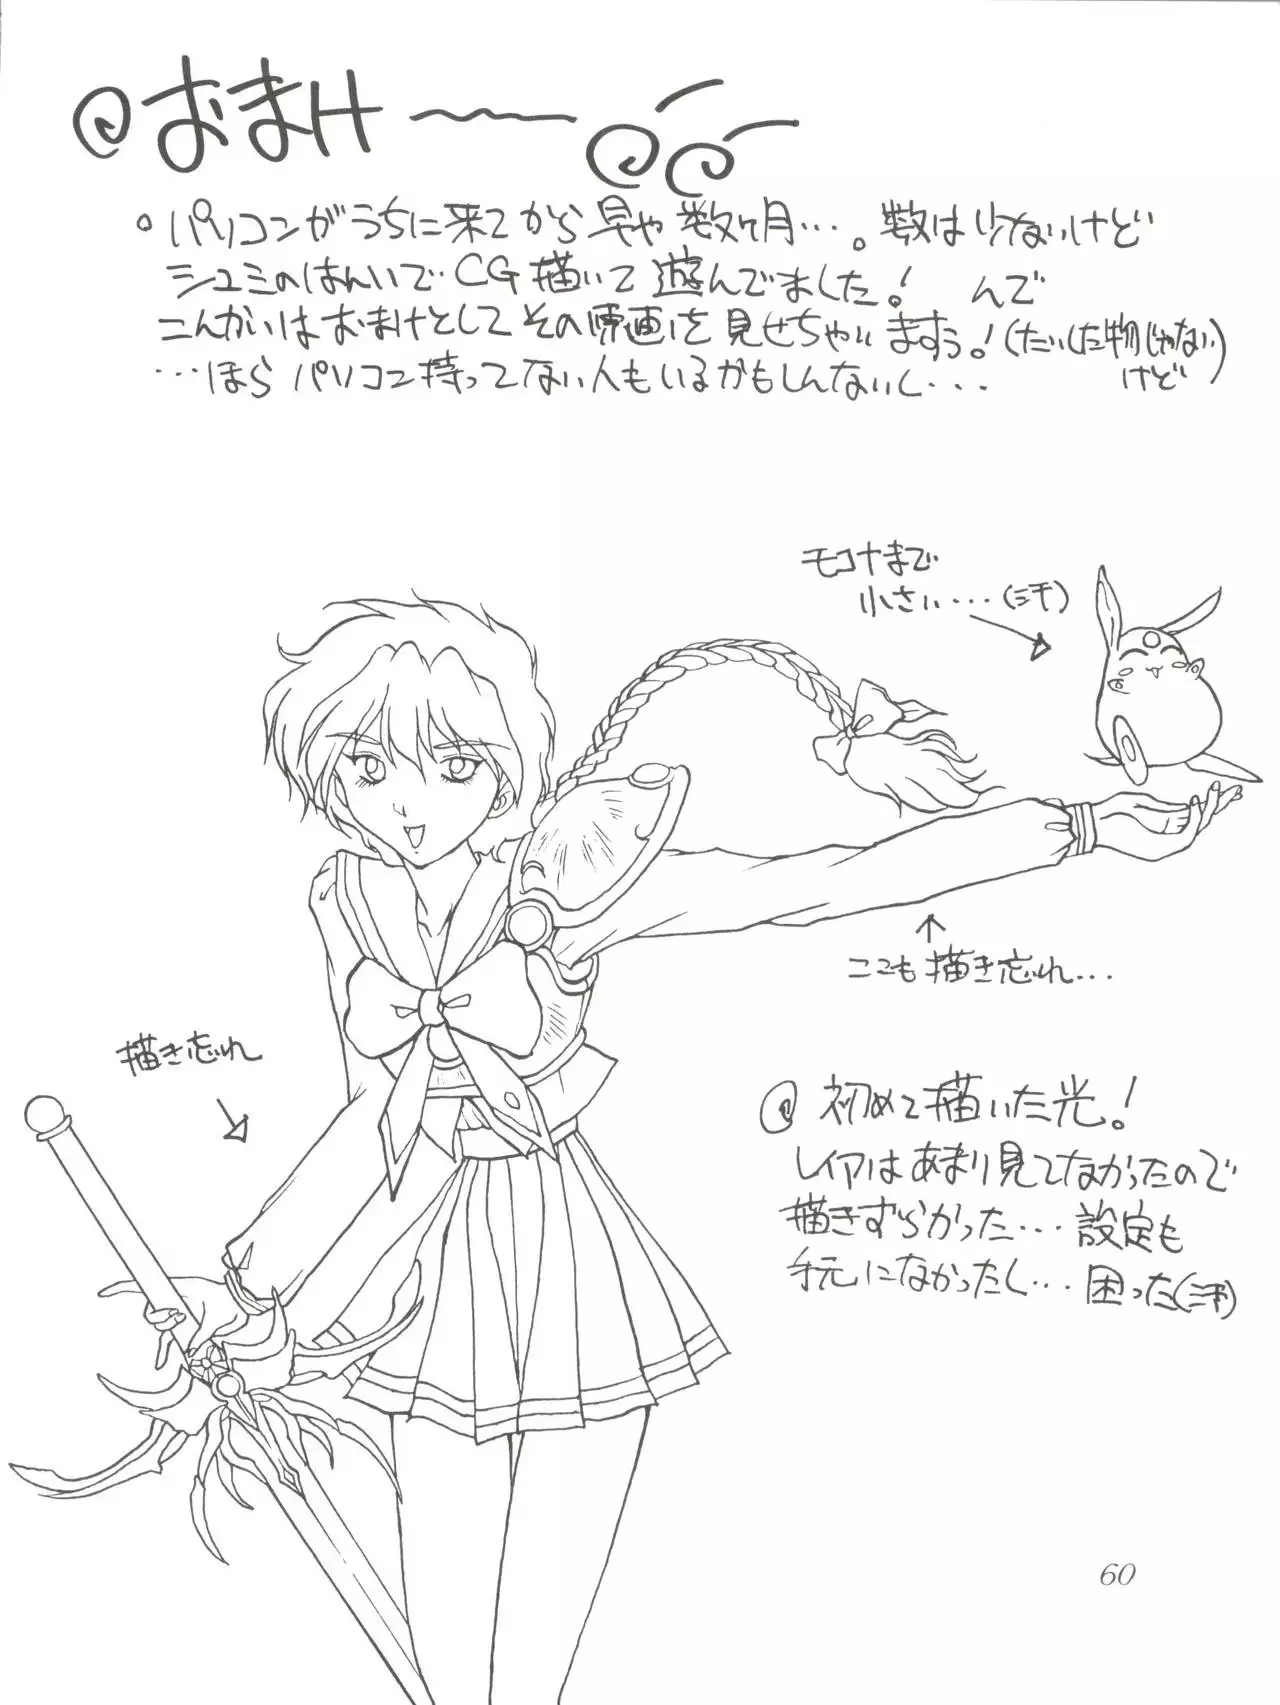 おまけ
パソコンがうちに来てから早や数ヶ月…。数は少ないけど
シュミのはんいでCG描いて遊んでました！んで
こんかいはおまけとしてその原画を見せちゃいますぅ！(たいした物じゃない
けど)
…ほらパソコン持ってない人もいるかもしんないし…
モコナまで
小さい…(汗)
ここも描き忘れ…
描き忘れ
初めて描いた光！
レイアはあまり見てなかったので
描きずらかった…設定も
手元になかったし…困った(汗)
60